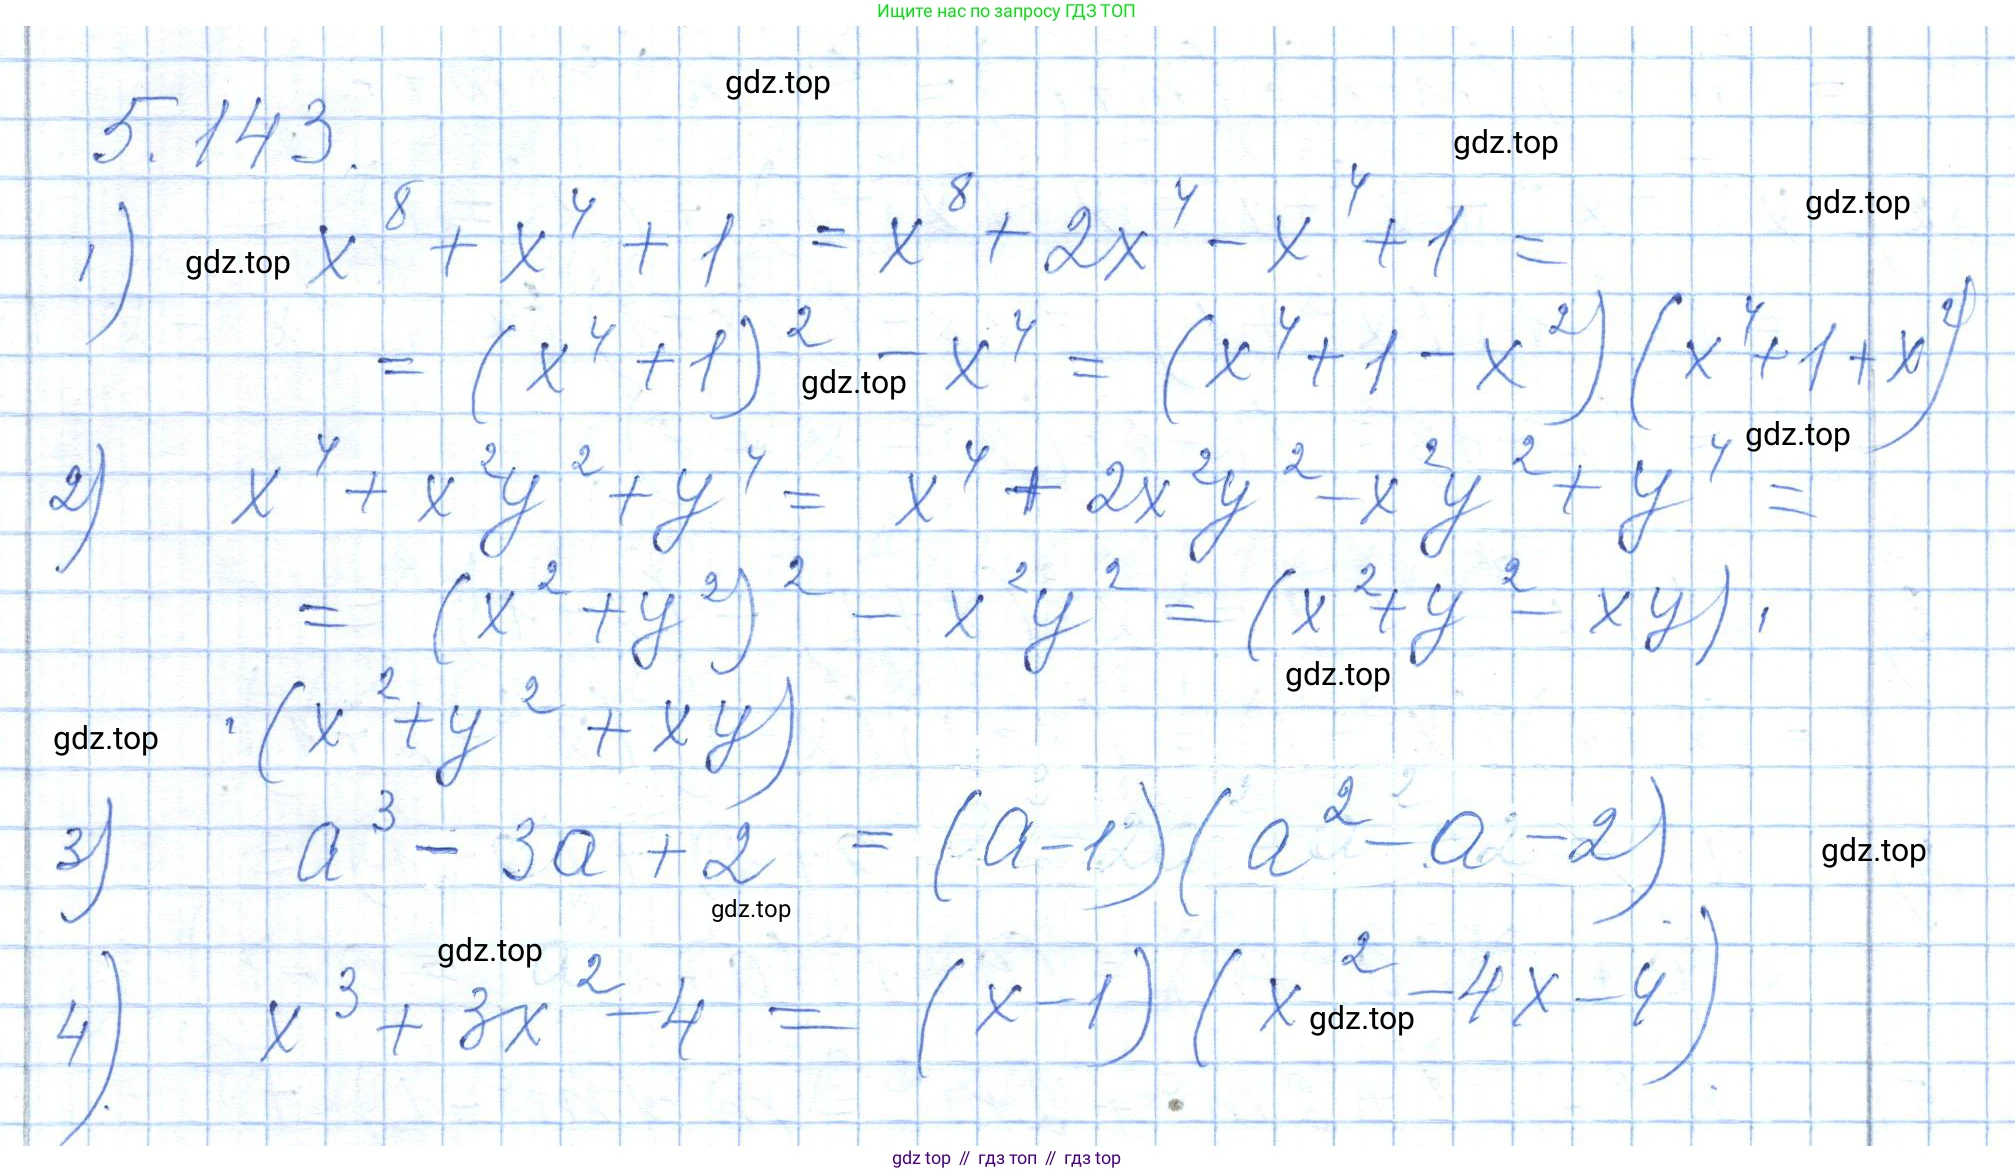 Ищите нас по запросу ГДЗ ТОП
gdz.top
5.143.
gdz.top
gdz.top
1) gdz.top x⁸ + x⁴ + 1 = x⁸ + 2x⁴ - x⁴ + 1 =
= (x⁴ + 1)² - x⁴ = (x⁴ + 1 - x²)(x⁴ + 1 + x²)
gdz.top
gdz.top
2) x⁴ + x²y² + y⁴ = x⁴ + 2x²y² - x²y² + y⁴ =
= (x² + y²)² - x²y² = (x² + y² - xy) ·
gdz.top
gdz.top · (x² + y² + xy)
3) a³ - 3a + 2 = (a - 1)(a² - a - 2)
gdz.top
gdz.top
gdz.top
4) x³ + 3x² - 4 = (x - 1)(x² - 4x - 4)
gdz.top
gdz top // гдз топ // гдз top